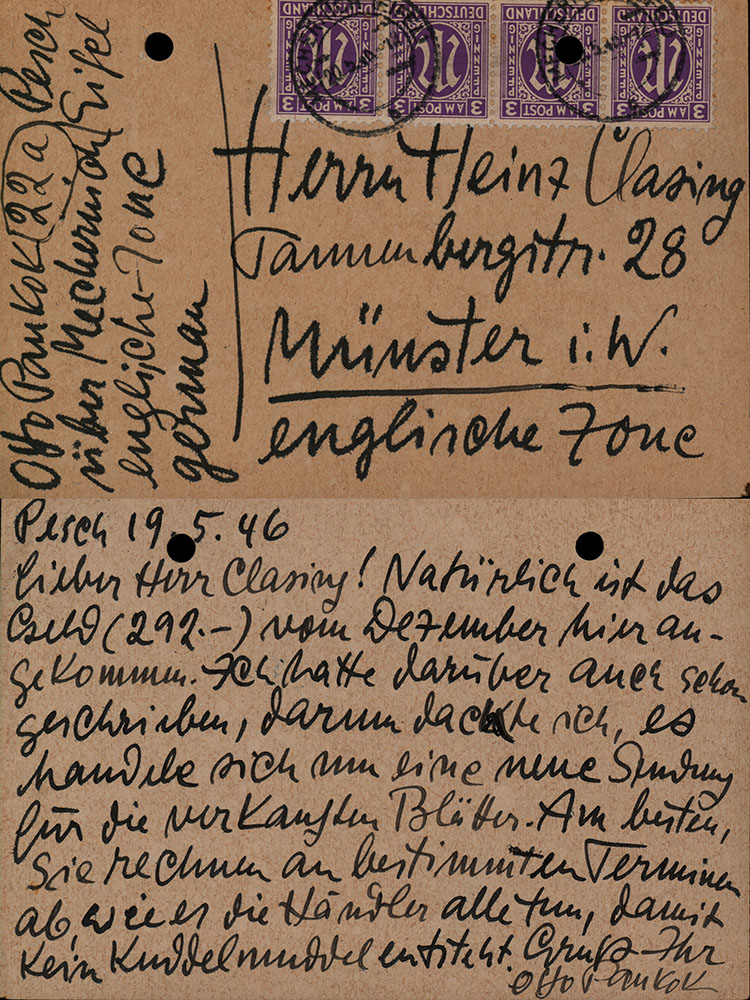 Otto Pankok (22a) Pesch
über Mechernich/Eifel
englische-Zone
german
DEUTSCHLAND DEUTSCHLAND DEUTSCHLAND DEUTSCHLAND
PFENNIG PFENNIG PFENNIG PFENNIG
3 AM POST 3 3 AM POST 3 3 AM POST 3 3 AM POST 3
Herrn Heinz Clasing
Tannenbergstr. 28
Münster i.W.
englische Zone
Pesch 19.5.46
Lieber Herr Clasing! Natürlich ist das
Geld (292.-) vom Dezember hier an-
gekommen. Ich hatte darüber auch schon
geschrieben, darum dachte ich, es
handele sich um eine neue Sendung
für die verkauften Blätter. Am besten,
Sie rechnen an bestimmten Terminen
ab, wie es die Händler alle tun, damit
kein Kuddelmuddel entsteht. Gruß-Ihr
Otto Pankok